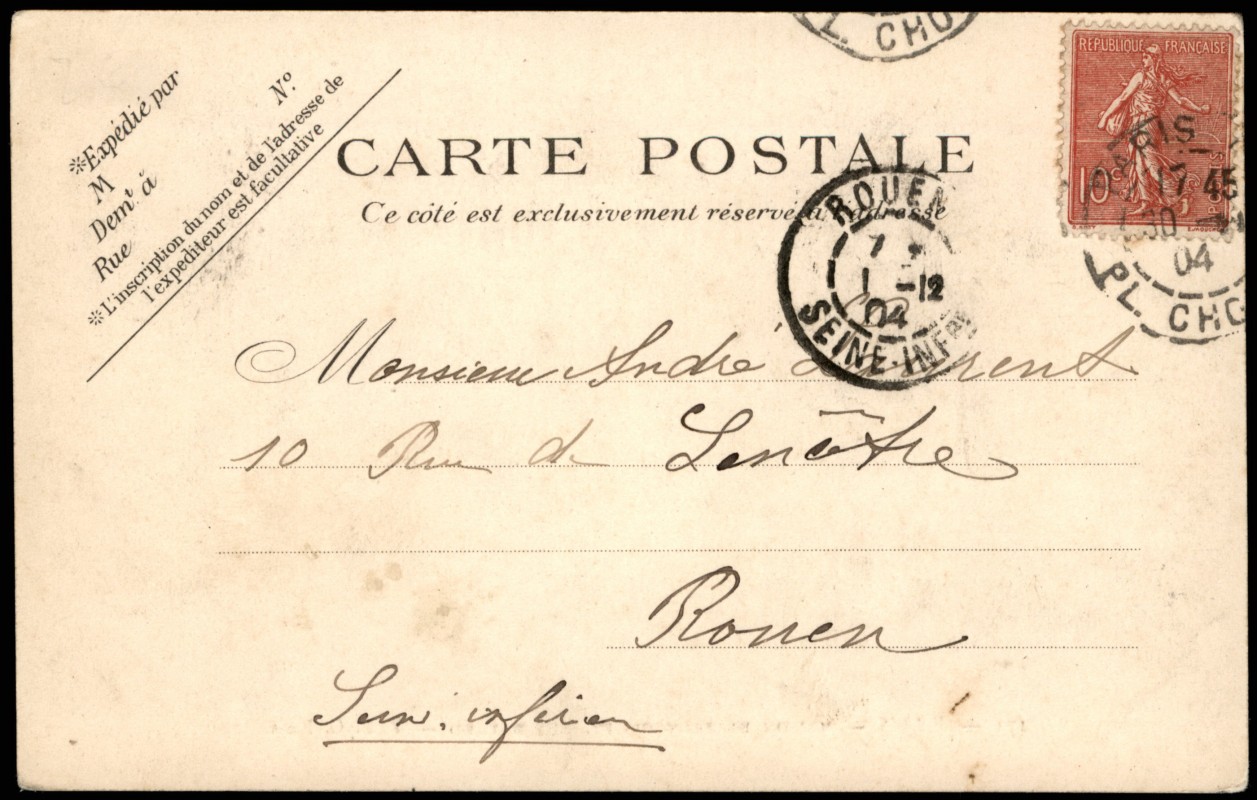 *Expédié par
M
Demᵗ à
Rue
Nº
*L'inscription du nom et de l'adresse de
l'expéditeur est facultative
CARTE POSTALE
Ce côté est exclusivement réservé à l'adresse
PL. CHO
RÉPUBLIQUE FRANÇAISE
10 c
PARIS
17 45
30
04
PL. CHO
ROUEN
7
1 -12
04
SEINE-INFRE
Monsieur André Laurent
10 Rue de Lenôtre
Rouen
Seine inférieu